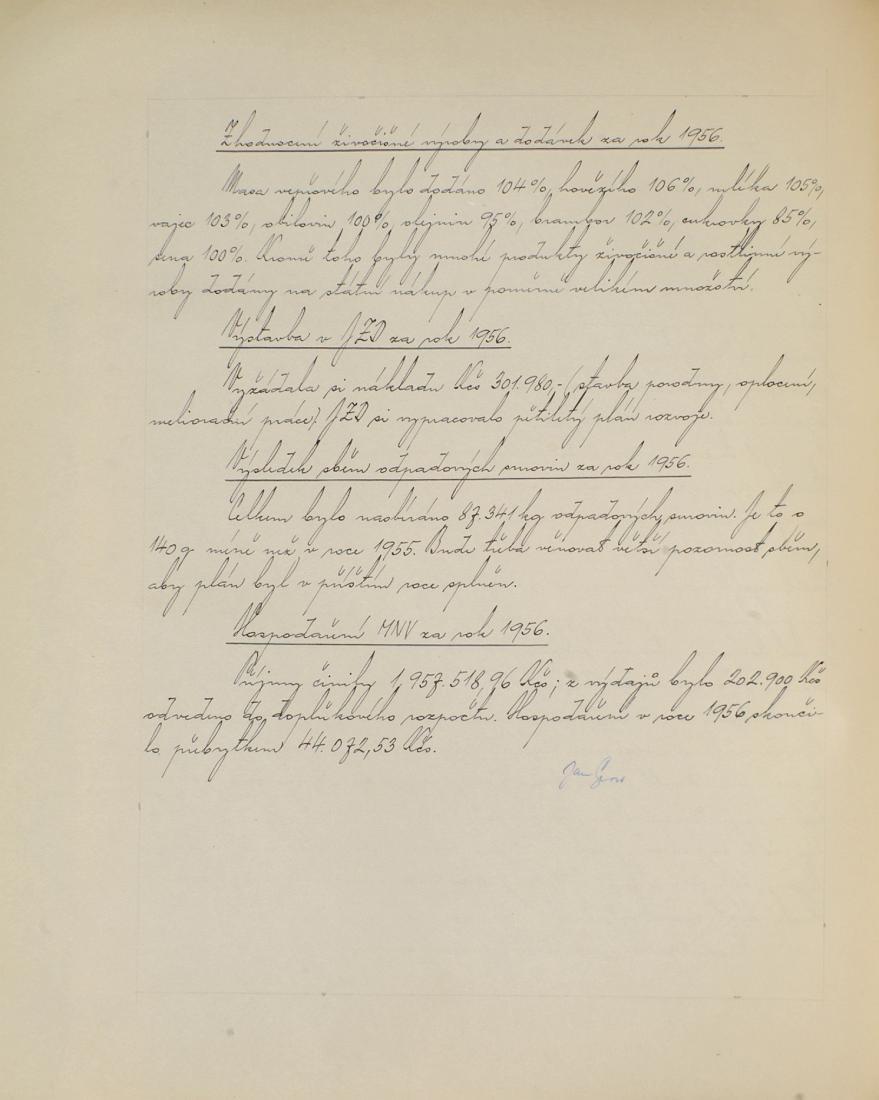 Zhodnocení živočišné výroby a dodávek za rok 1956.
Masa vepřového bylo dodáno 104%, hovězího 106%, mléka 105%,
vajec 103%, obilovin 100%, olejnin 95%, brambor 102%, cukrovky 85%,
sena 100%. Kromě toho byly mnohé produkty živočišné a rostlinné vý-
roby dodány na státní nákup v poměrně velikém množství.
Výstavba v JZD za rok 1956.
Vyžádala si nákladu Kčs 301.980,- (stavba porodny, oplocení,
meliorační práce). JZD si vypracovalo pětiletý plán rozvoje.
Výsledek sběru odpadových surovin za rok 1956.
Celkem bylo nasbíráno 87.341 kg odpadových surovin. Je to o
140 g méně než v roce 1955. Bude třeba věnovat větší pozornost sběru,
aby plán byl v příštím roce splněn.
Hospodaření MNV za rok 1956.
Příjmy činily 1,957.518,96 Kčs; z výdajů bylo 202.900 Kčs
odvedeno do doplňkového rozpočtu. Hospodaření v roce 1956 skonči-
lo přebytkem 44.072,53 Kčs.
Jan